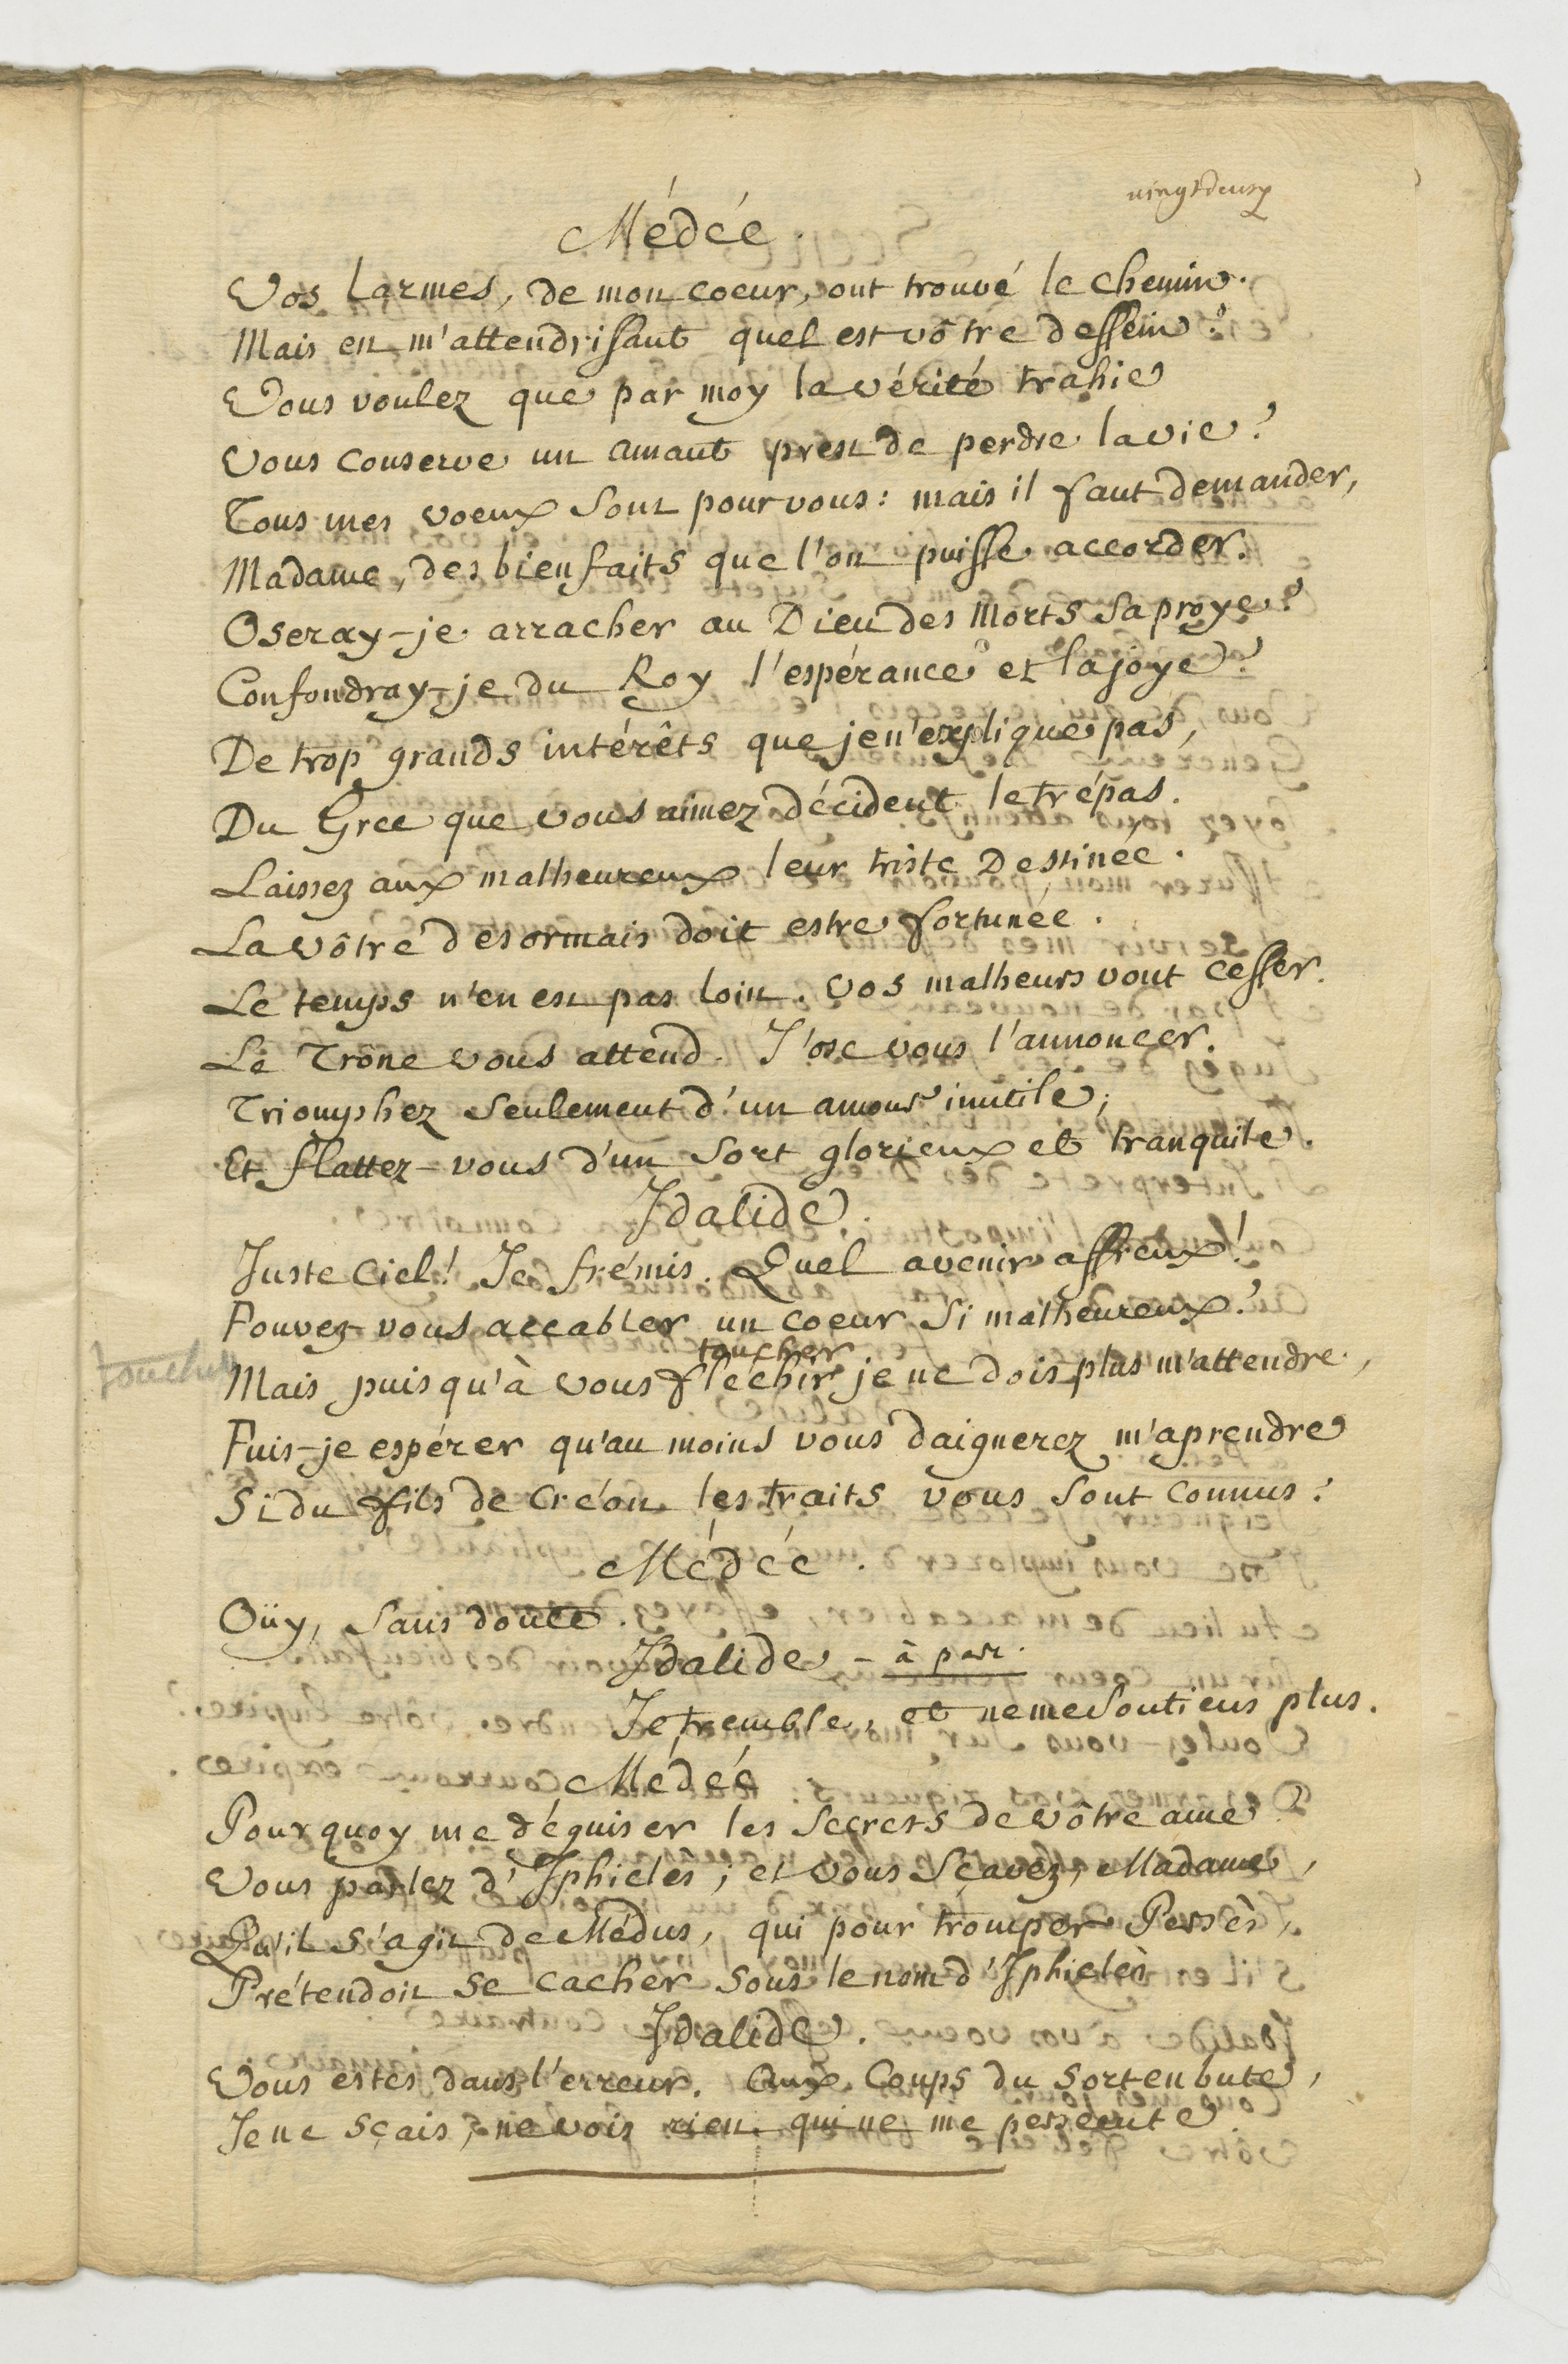 vingt deux
Médée.
Vos larmes, de mon coeur, ont trouvé le chemin.
Mais en m'attendrissant quel est vôtre dessein?
Vous voulez que par moy la vérité trahie
Vous conserve un amant prest de perdre la vie?
Tous mes voeux sont pour vous: mais il faut demander,
Madame, des bienfaits que l'on puisse accorder.
Oseray-je arracher au Dieu des Morts sa proye?
Confondray-je du Roy l'espérance et la joye?
De trop grands intérêts que je n'explique pas,
Du Grec que vous aimez décident le trépas.
Laissez aux malheureux leur triste Destinée.
La vôtre desormais doit estre fortunée.
Le temps n'en est pas loin. Vos malheurs vont cesser.
Le Trône vous attend. J'ose vous l'annoncer.
Triomphez seulement d'un amour inutile;
Et flattez-vous d'un sort glorieux et tranquile.
Idalide.
Juste Ciel! Je frémis. Quel avenir affreux!
Pouvez-vous accabler un coeur si malheureux?
toucher
toucher
Mais puisqu'à vous fléchir je ne dois plus m'attendre,
Puis-je espérer qu'au moins vous daignerez m'aprendre
Si du fils de Créon les traits vous sont connus?
Médée.
Oüy, sans doute.
Idalide - à part.
Je tremble, et ne me soutiens plus.
Médée
Pourquoy me déguiser les secrets de vôtre ame?
Vous parlez d'Iphiclès; et vous sçavez, Madame,
Qu'il s'agit de Médus, qui pour tromper Persès,
Prétendoit se cacher sous le nom d'Iphiclès
Idalide.
Vous estes dans l'erreur. Aux Coups du sort en bute,
Je ne sçais, ne vois rien qui ne me persecute.